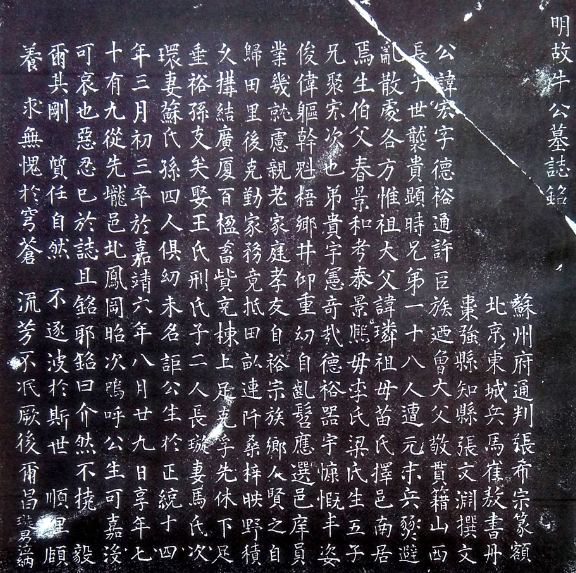 明故牛公墓誌銘
蘇州府通判張布宗篆額
北京東城兵馬崔敖書丹
棗強縣知縣張文淵撰文
公諱宏字德裕通許巨族迺曾大父敬貫籍山西
長子世襲貴顯時兄弟一十八人遭元末兵燹避
亂散處各方惟祖大父諱璘祖母苗氏擇邑南居
焉生伯父春景和考泰景熙母李氏梁氏生五子
兄聚宗次也弟貴宇憲奇哉德裕器宇慷慨丰姿
俊偉軀幹魁梧鄉井仰重幼自齔髫應選邑庠員
業幾就慮親老家庭孝友自裕宗族鄉人賢之自
歸田里後克勤家務竞抵田畝連阡桑梓映野積
久構結廣厦百楹畜貲充棟上足充孚先休下足
垂裕孫支矣娶王氏刑氏子二人長璇妻馬氏次
環妻蘇氏孫四人俱幼未名詎公生於正統十四
年三月初三卒於嘉靖六年八月廿九日享年七
十有九從先壠邑北鳳岡昭次嗚呼公生可嘉沒
可哀也惡忍已於誌且銘耶銘曰介然不撓 毅
爾其剛 質任自然 不逐波於斯世 順理頤
養 求無愧於穹蒼 流芳不泯厥後爾昌